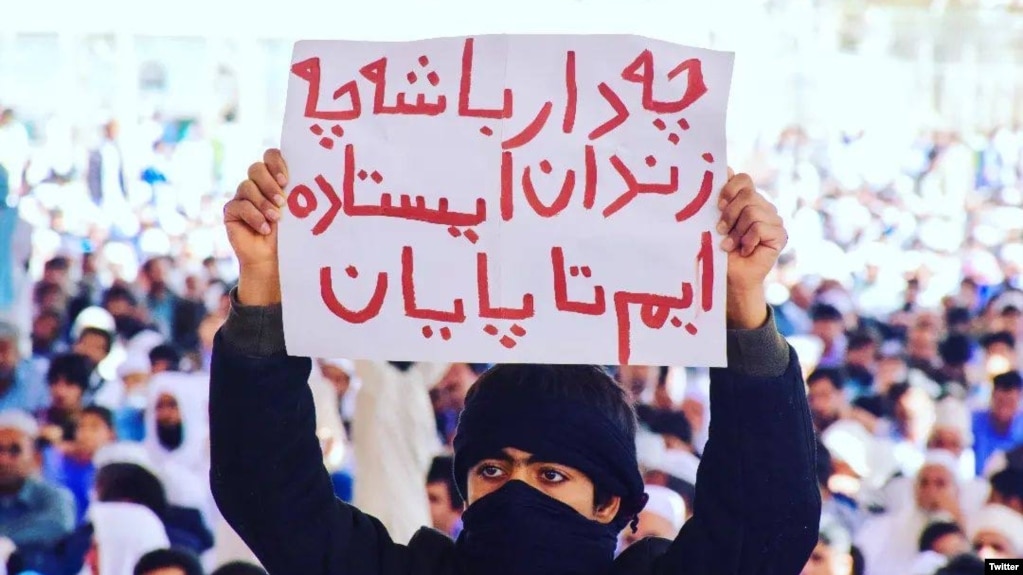 چه دار باشه چه
زندان ایستاده
ایم تا پایان
Twitter